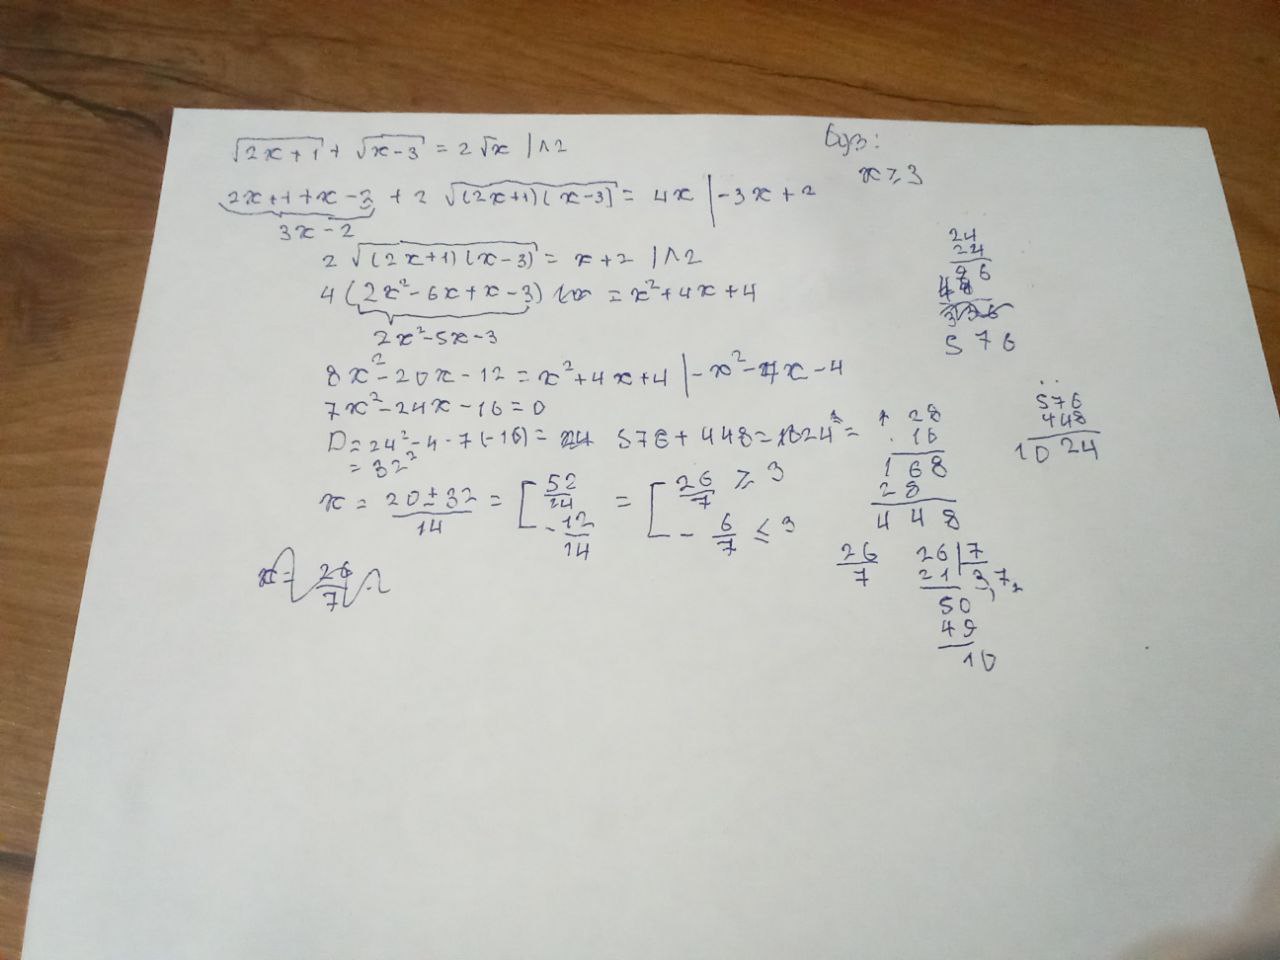 √2x+1 + √x-3 = 2√x | ^2
2x+1+x-3 + 2 √(2x+1)(x-3) = 4x | -3x+2
3x-2
2 √(2x+1)(x-3) = x+2 | ^2
4 (2x²-6x+x-3) = x²+4x+4
2x²-5x-3
8x²-20x-12 = x²+4x+4 | -x²-4x-4
7x²-24x-16=0
D=24²-4·7(-16)= 576+448=1024=
= 32²
x = 20±32/14 = [ 52/14 = [ 26/7 ⩾ 3
-12/14 - 6/7 ⩽ 3
x = 26/7
x⩾3
24
24
96
48
336
576
576
448
1024
28
16
168
28
448
26/7
26 | 7
21 3,7
50
49
10